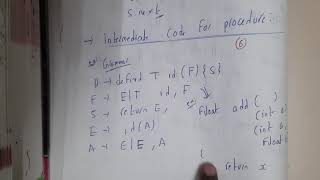 S.next
→ Intermediate Code For procedure:
6
Grammar
D → defind T id (F) {S}
F → E | T id, F
S → return E,
E → , d(A)
A → E | E, A
Float add ( )
(int a
(int a,
Float
{
return x